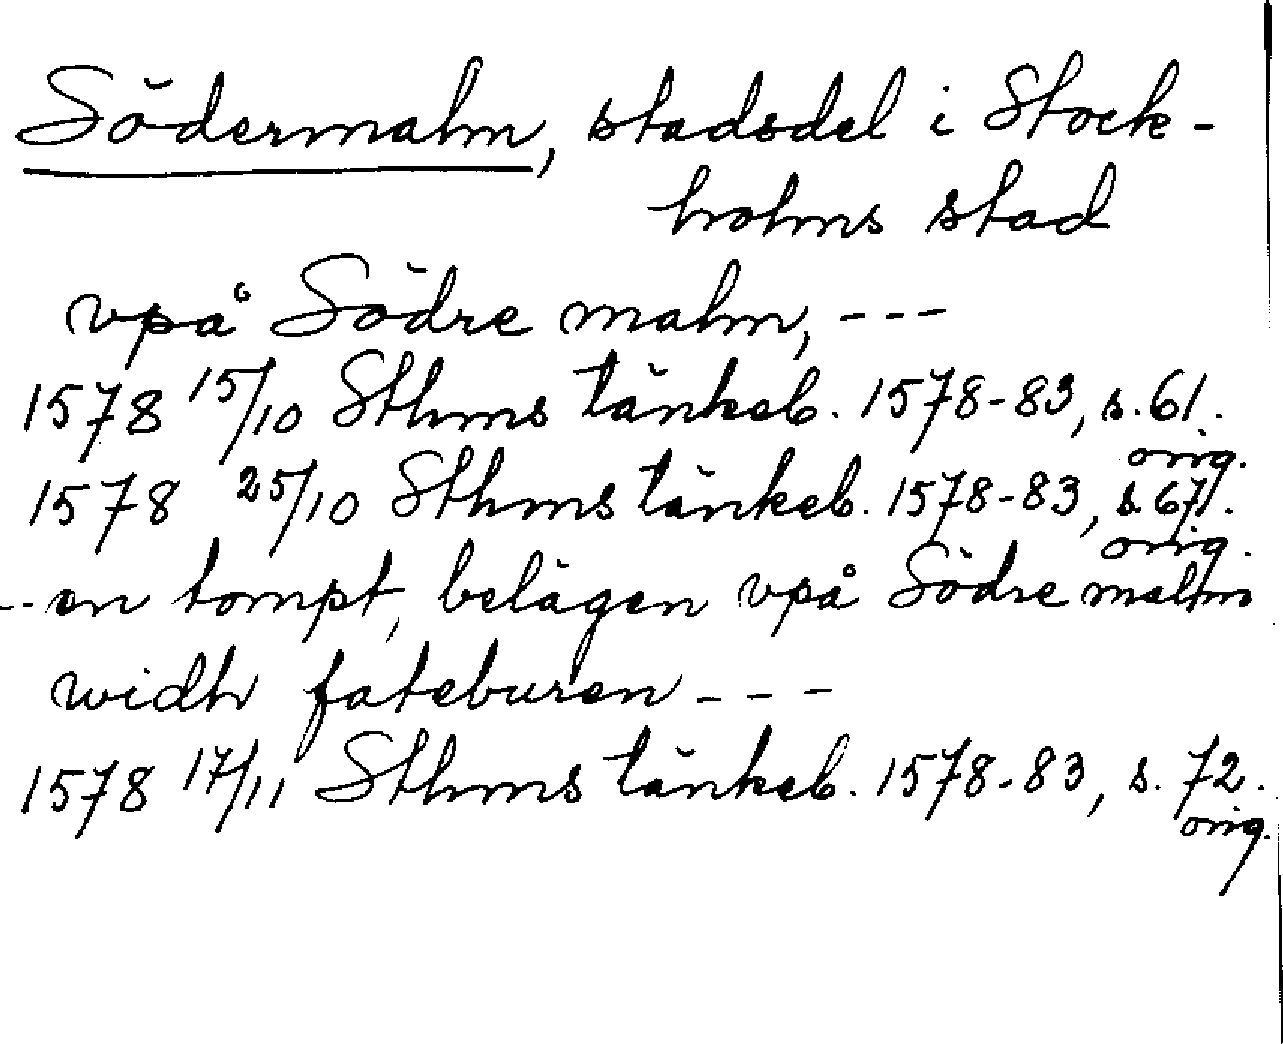 Södermalm, stadsdel i Stock-
holms stad
vpå Södre malm, ---
1578 15/10 Sthms tänkeb. 1578-83, s. 61.
orig.
1578 25/10 Sthms tänkeb. 1578-83, s. 67.
orig.
-- en tompt, belägen vpå Södre malm
widh fateburen ---
1578 17/11 Sthms tänkeb. 1578-83, s. 72.
orig.